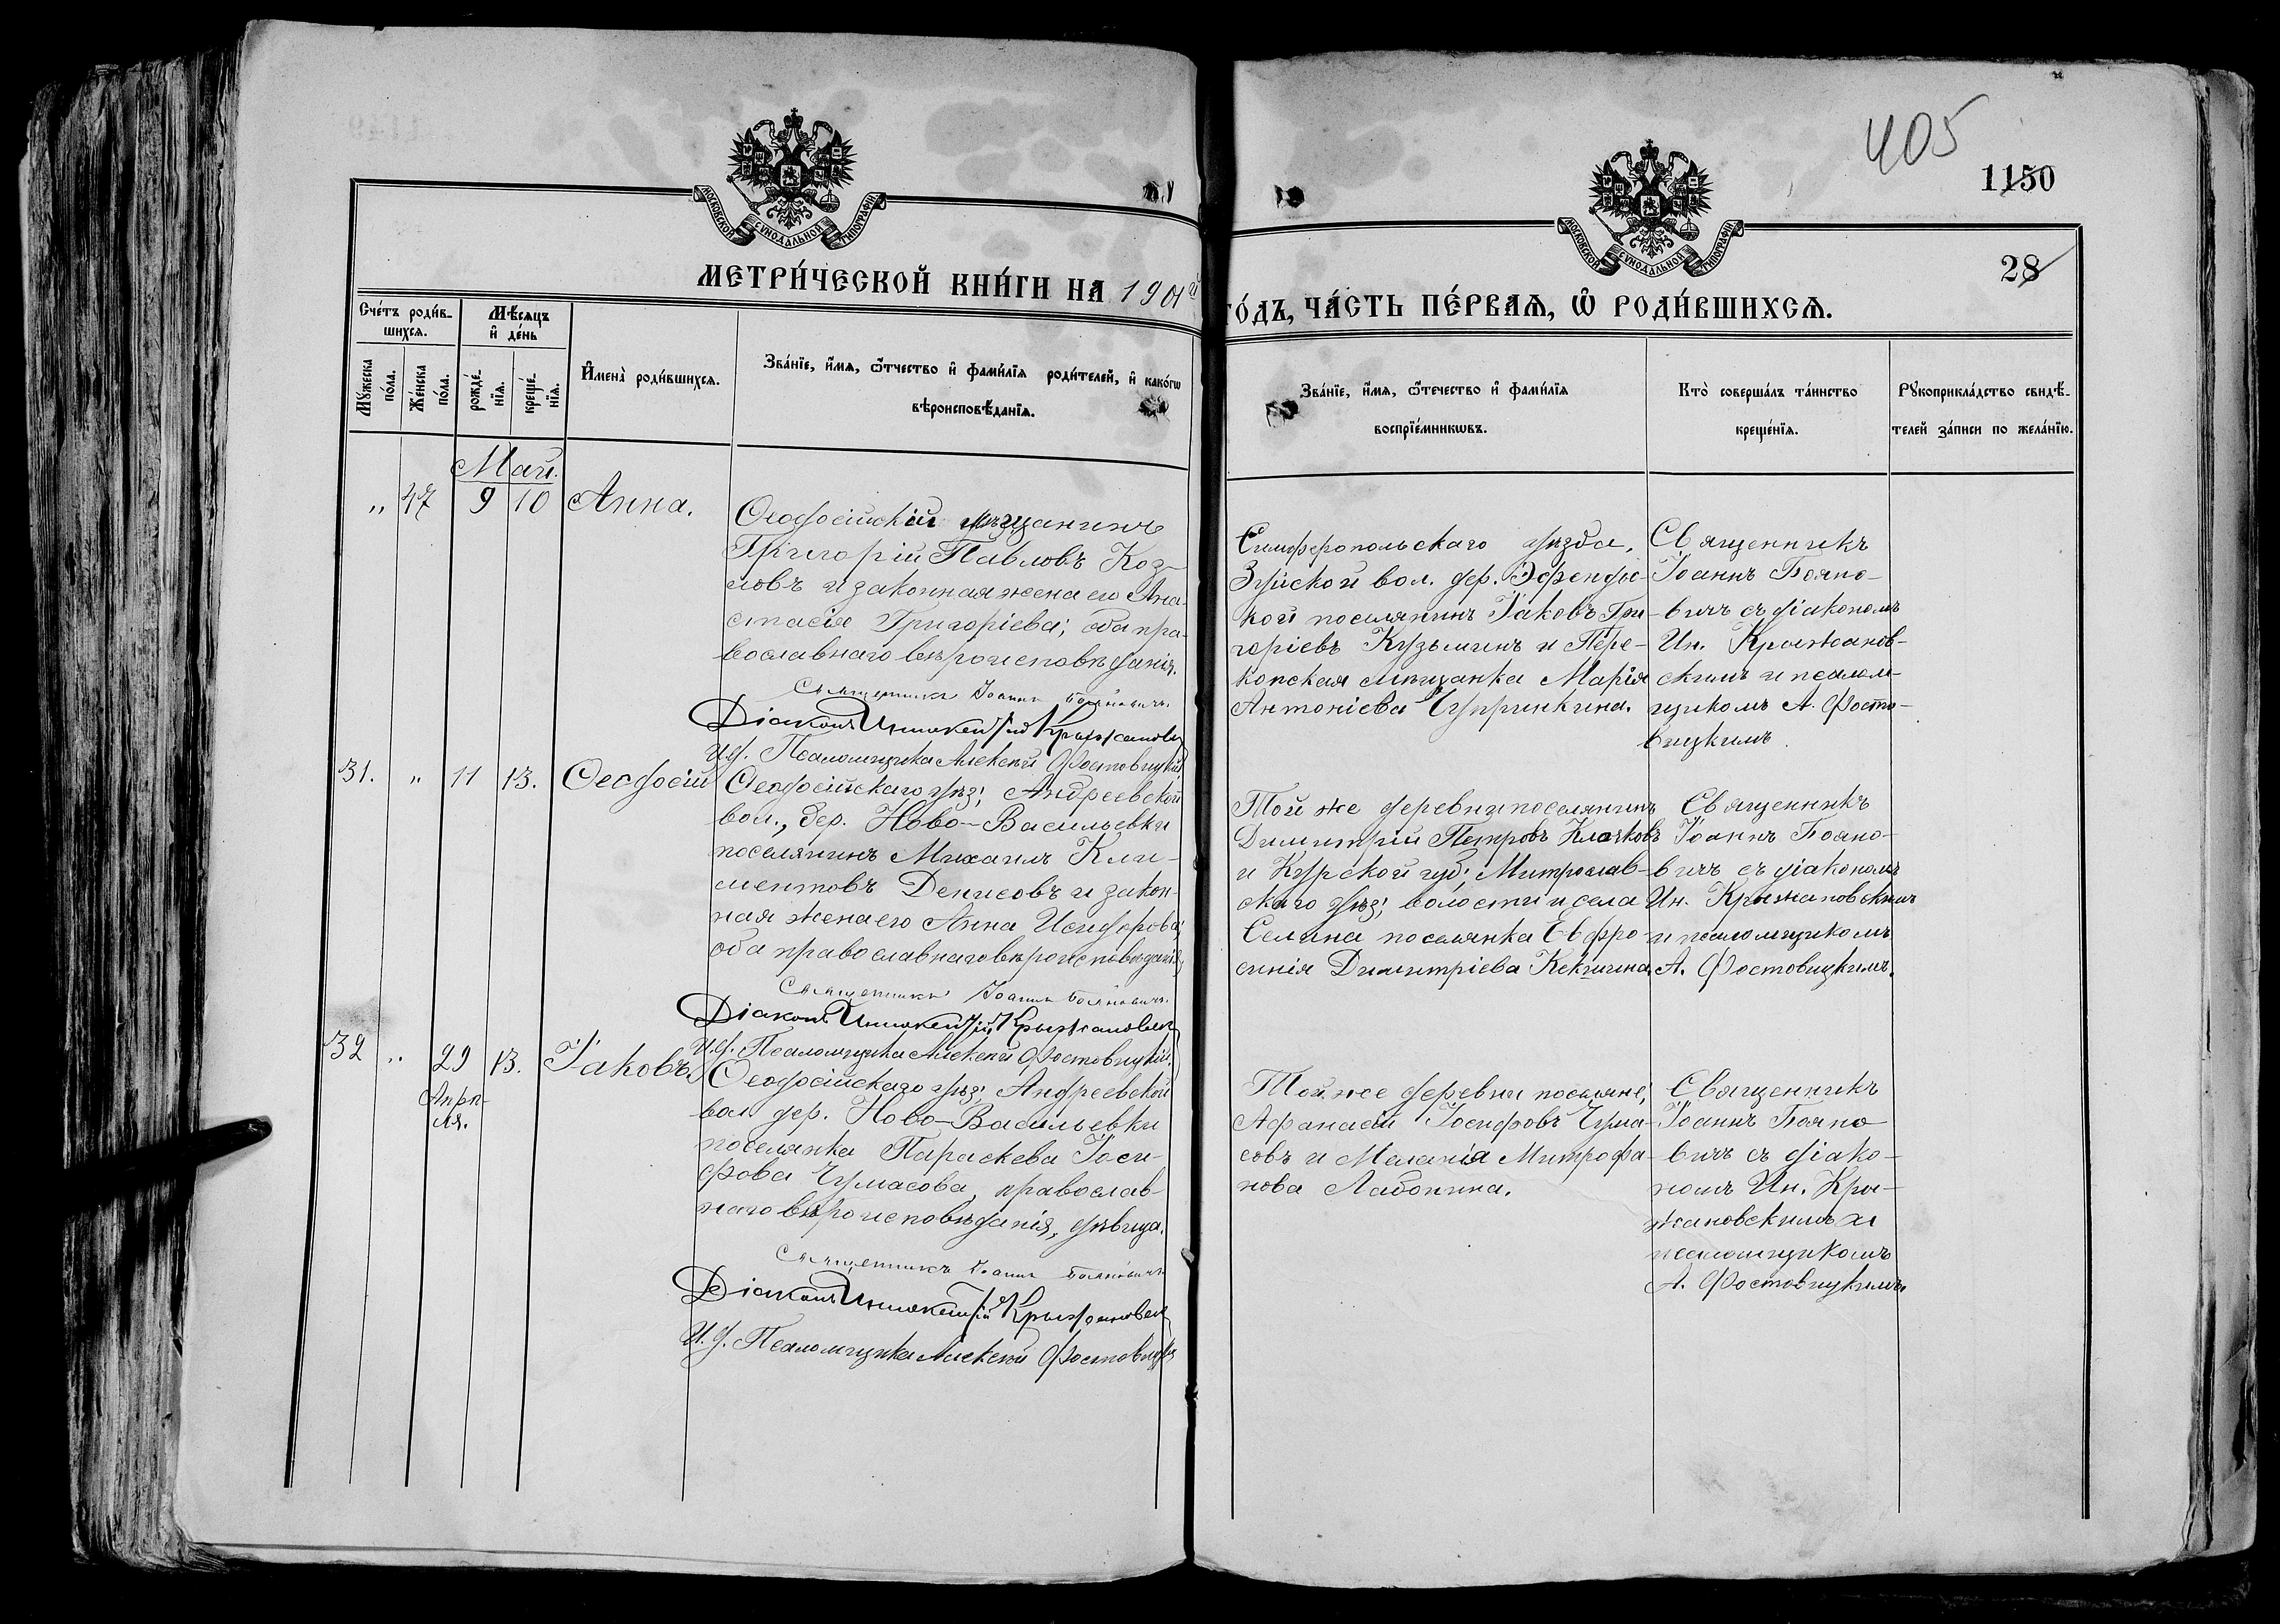 405
1150
28
МОСКОВСКОЙ СѴНОДАЛЬНОЙ ТИПОГРАФІИ
МОСКОВСКОЙ СѴНОДАЛЬНОЙ ТИПОГРАФІИ
МЕТРИ́ЧЕСКОЙ КНИ́ГИ НА 1901й
ГО́ДЪ, ЧА́СТЬ ПЕ́РВАЯ, Ѡ҆ РОДИ́ВШИХСЯ.
Сче́тъ роди́в-
шихся.
Мѣ́сяцъ
и҆ де́нь
Мꙋ́жеска
по́ла.
Же́нска
по́ла.
рожде́-
нїя.
креще́-
нїя.
И҆мена̀ роди́вшихся.
Зва́нїе, и҆́мя, ѻ҆́тчество и҆ фами́лїя роди́телей, и҆ како́гѡ
вѣроисповѣ́данїя.
Зва́нїе, и҆́мя, ѻ҆́течество и҆ фами́лїя
воспрїе́мникѡвъ.
Кто̀ соверша́лъ та́инство
креще́нїя.
Рꙋкоприкла́дство свидѣ́-
телей за́писи по жела́нїю.
Май.
„ 47 9 10 Анна.
Ѳеодосійскій мѣщанинъ
Григорій Павловъ Коз-
ловъ и законная жена его Ана-
стасія Григоріева; оба пра-
вославнаго вѣроисповѣданія.
Священникъ Іоаннъ Бояновичъ.
Діаконъ Иннокентій Крыжановск
И.д. Псаломщика Алексѣй Фостовицкій
Симферопольскаго уѣзда,
Зуйской вол. дер. Эфендс-
кой поселянинъ Іаковъ Гри-
горіевъ Кузьминъ и Пере-
копская мѣщанка Марія
Антоніева Чупринкина.
Священникъ
Іоаннъ Бояно-
вичъ съ діакономъ
Ин. Крыжанов-
скимъ и псалом-
щикомъ А. Фосто-
вицкимъ.
31. „ 11 13. Ѳеодосій
Ѳеодосійскаго уѣз; Андреевской
вол., дер. Ново-Васильевки
поселянинъ Михаилъ Кли-
ментовъ Денисовъ и закон-
ная жена его Анна Исидорова;
оба православнаго вѣроисповѣданія.
Священникъ Іоаннъ Бояновичъ.
Діаконъ Иннокентій Крыжановск
И.д. Псаломщика Алексѣй Фостовицкій.
Той же деревни поселянинъ
Димитрій Петровъ Клачковъ
и Курской губ; Митрослав-
скаго уѣз; волости и села
Селина поселянка Евфро-
синія Димитріева Кекшина.
Священникъ
Іоаннъ Бояно-
вичъ съ діакономъ
Ин. Крыжановскимъ
и псаломщикомъ
А. Фостовицкимъ.
32 „ 29 13. Іаковъ.
Апрѣ-
ля.
Ѳеодосійскаго уѣз; Андреевской
вол. дер. Ново-Васильевки
поселянка Параскева Іоси-
фова Чумасова, православ-
наго вѣроисповѣданія, дѣвица.
Священникъ Іоаннъ Бояновичъ
Діаконъ Иннокентій Крыжановск
И.д. Псаломщика Алексѣй Фостовицкій
Той же деревни поселяне;
Афанасій Іосифовъ Чума-
совъ и Меланія Митрофа-
нова Лабонина.
Священникъ
Іоаннъ Бояно
вичъ съ діако-
номъ Ин. Кры-
жановскимъ и
псаломщикомъ
А. Фостовицкимъ.